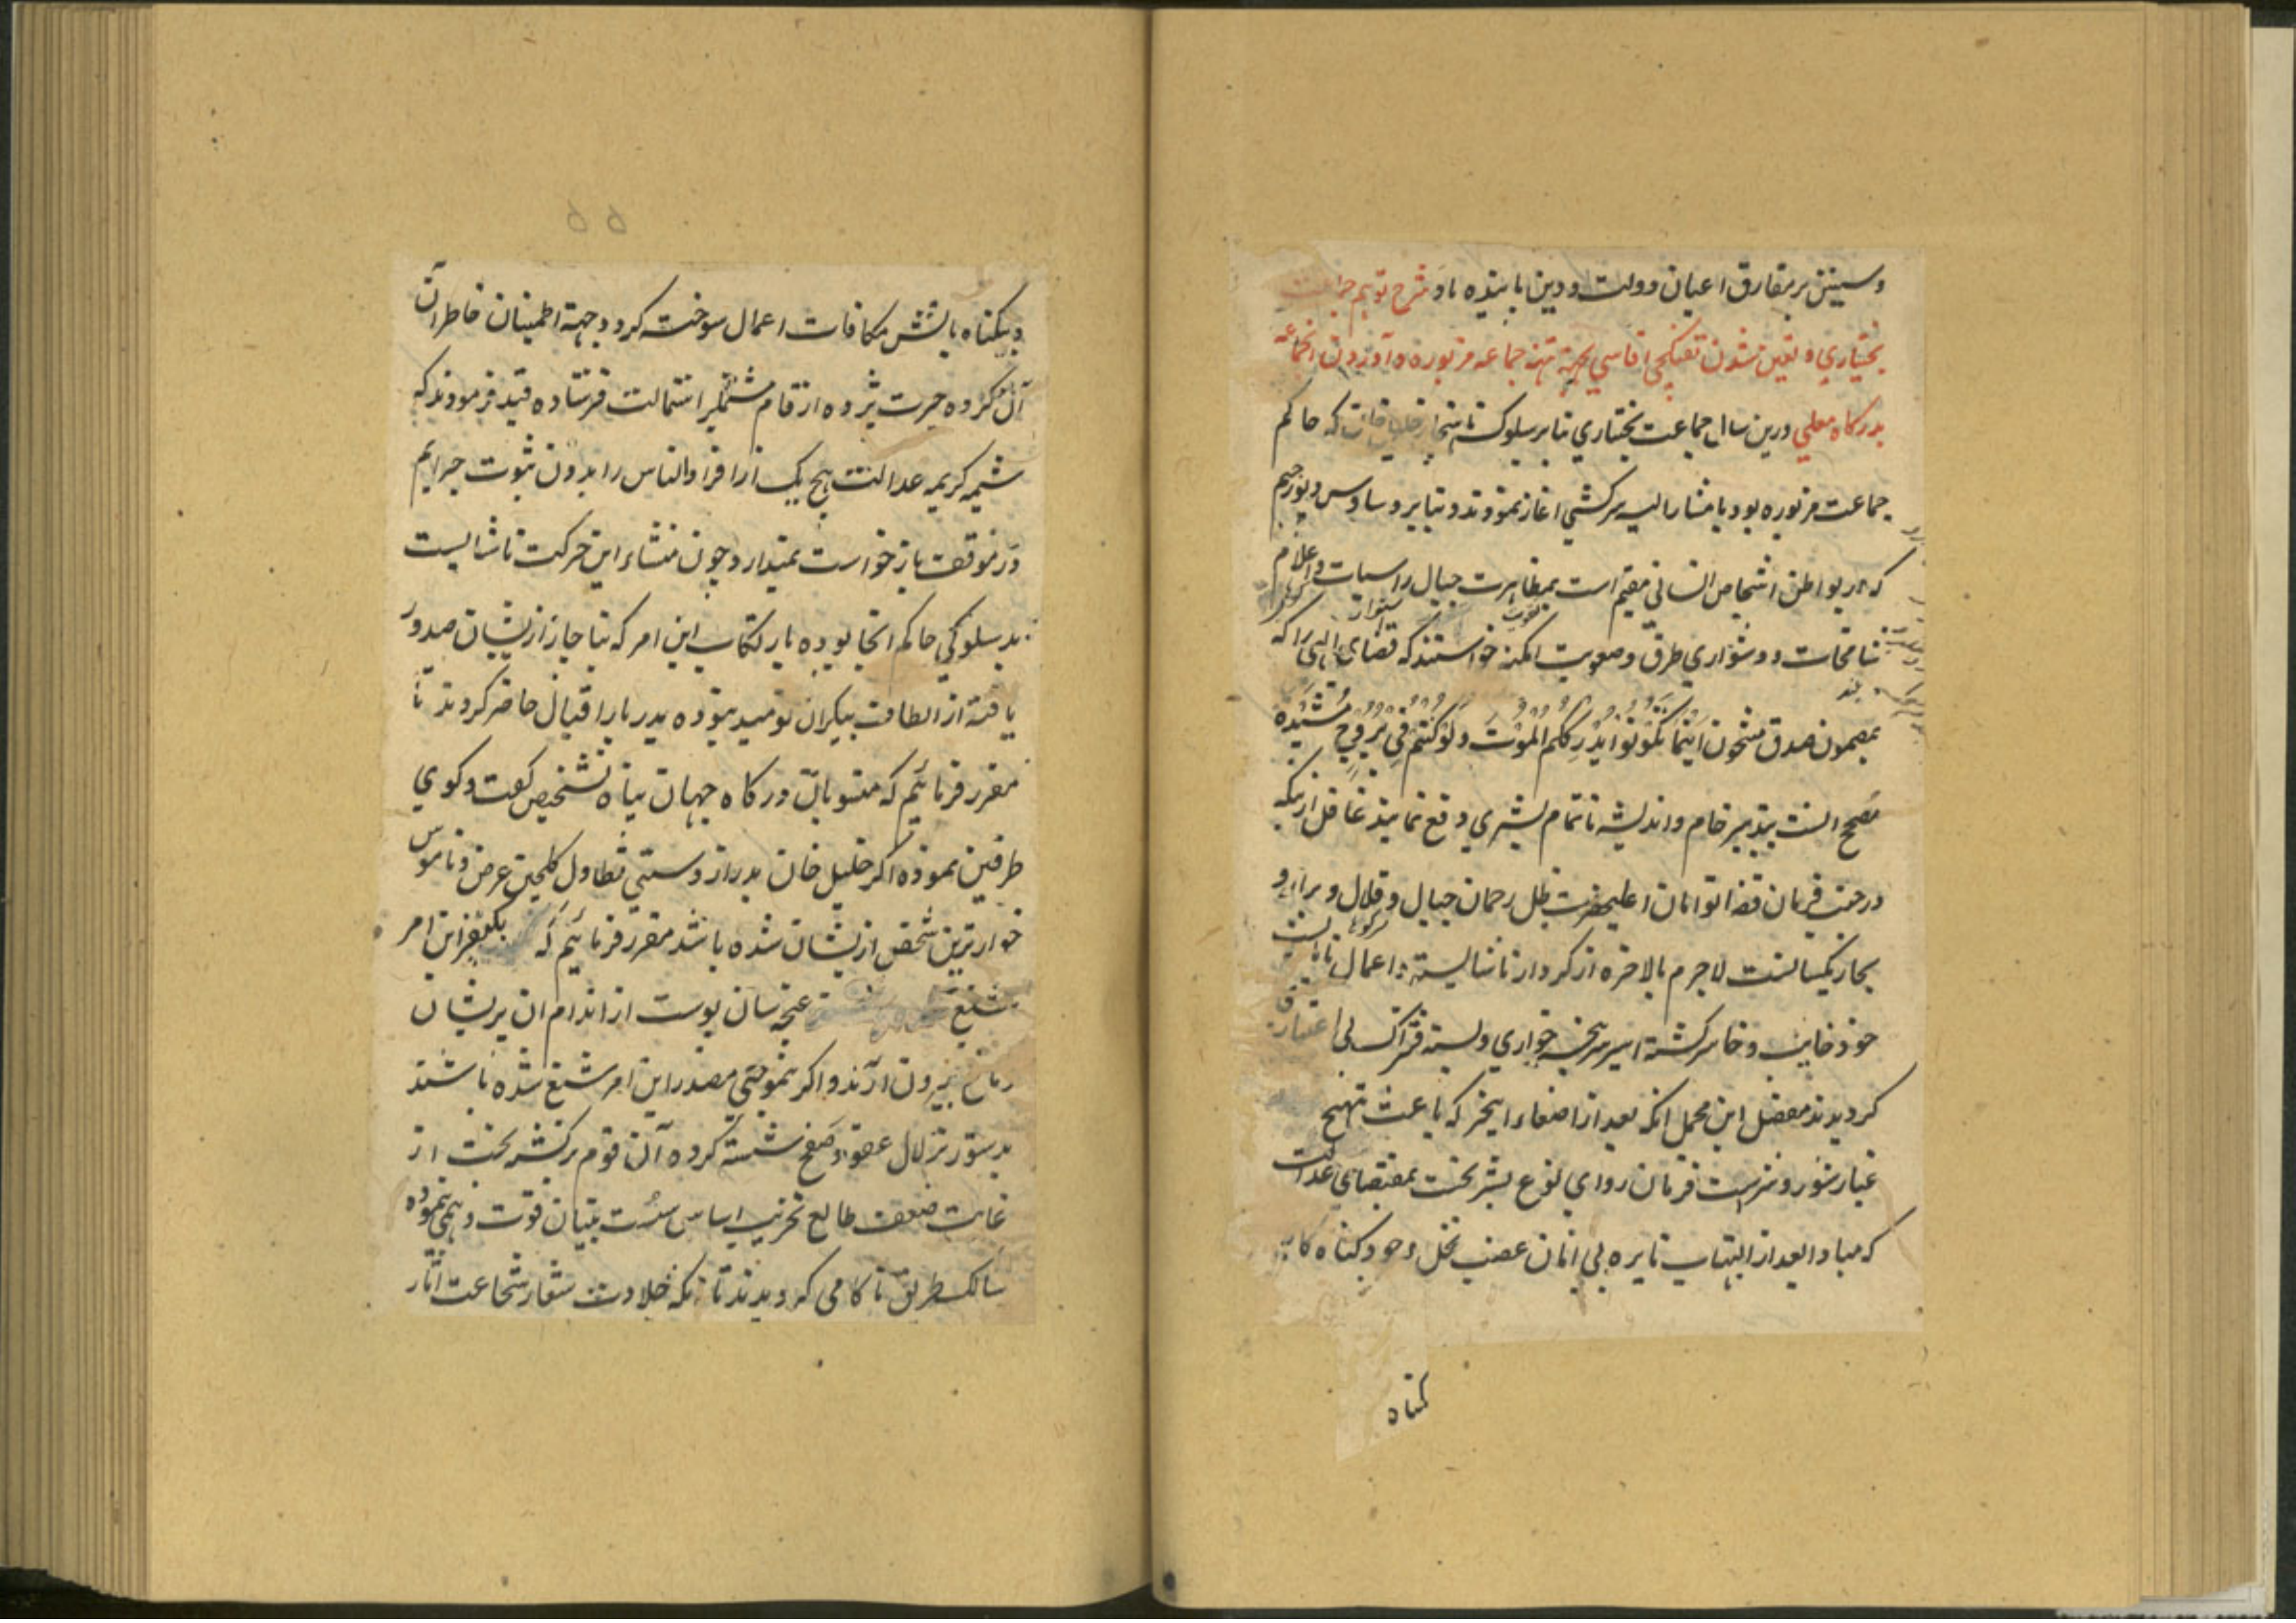 و سنین بر مفارق اعیان دولت و دین پاینده باد شرح
بختیاری و تعین شدن تفنگچی اقاسی بجهة تنبیه جماعه مزبوره و آوردن انجماعه
بدرگاه معلی درین سال جماعت بختیاری بنا بر سلوک ناهنجار خلیل خان که حاکم
جماعت مزبوره بود با مشار الیه سرکشی اغاز نمودند و بنا بر وساوس دیو رجیم
که در بواطن اشخاص انسانی مقیم است بمظاهرت جبال راسیات و اعلام
شامخات و دشواری طرق و صعوبت امکنه خواستند که قضای الهی را که
بمضمون صدق مشحون اَینَما تَکُونُوا یُدرِککُمُ المَوتُ وَلَو کُنتُم فِی بُرُوجٍ مُشَیَّدَه
بتدبیر خام و اندیشه ناتمام بشری دفع نمایند غافل ازینکه
در جنب فرمان قضا توامان اعلیحضرت ظل رحمان جبال و قلال و براری و
بحار یکسانست لاجرم بالاخره از کردار ناشایسته و اعمال نابایست
خود خایب و خاسر گشته اسیر سرپنجه خواری و بسته فتراک بی اعتباری
گردیدند مفصل این مجمل انکه بعد از اصغاء اینخبر که باعث تهیج
غبار شور و شر است فرمان روای نوع بشر بحت بمقتضای عدالت
که مبادا بعد از التهاب نایره بی امان غضب نخل وجود گناه کار
گناه
۵۵
و بیگناه باتش مکافات اعمال سوخته گردد و جهة اطمینان خاطر آن
آن گروه حیرت پژوه ارقام مشتمل بر استمالت فرستاده قید فرمودند که
شیمه کریمه عدالت هیچ یک از افراد الناس را بدون ثبوت جرایم
در موقف بازخواست نمیدارد چون منشاء این حرکت ناشایست
بد سلوکی حاکم انجا بوده بارتکاب این امر که بناچار ازیشان صدور
یافته از الطاف بیکران نومید نبوده بدربار اقبال حاضر گردند تا
مقرر فرمائیم که منسوبان درگاه جهان پناه تشخیص گفت و گوی
طرفین نموده اگر خلیل خان بدراز دستی تطاول گلچین عرض و ناموس
خوارترین شخص ازیشان شده باشد مقرر فرمائیم که بکیفر این امر
شنیع غنچه سان پوست از اندام ان پریشان
دماغ بیرون آرند و اگر بتهمتی مصدر این امر شنیع شده باشند
بدستور بزلال عفو و صفح شسته گردد آن قوم برگشته بخت از
غایت ضعف طالع تخریب اساس سست بنیان قوت وهمی نموده
سالک طریق ناکامی گردیدند تا انکه جلادت شعار شجاعت اثار